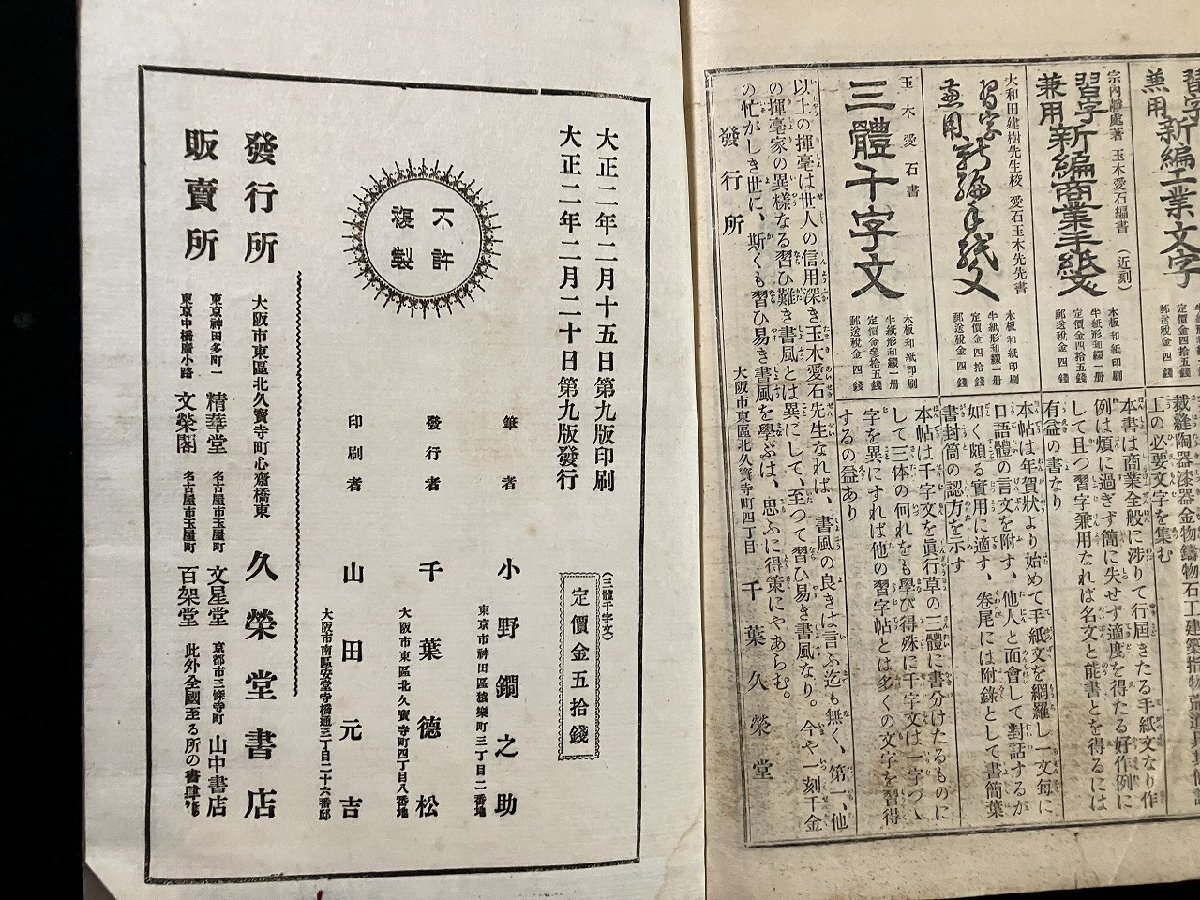 習字
兼用
新編工業文字
定價金四拾五錢
郵送稅金四錢
裁縫陶器漆器金物鑄物石工建築指物
工の必要文字を集む
宗內靜處著 玉木愛石編書 (近刻)
習字
兼用
新編商業手紙文
木板和紙印刷
半紙形和綴一册
定價金四拾五錢
郵送稅金四錢
本書は商業全般に涉りて行屆きたる手紙文なり作
例は煩に過ぎず簡に失せず適度を得たる好作例に
して且つ習字兼用なれば名文と能書とを得るには
有益の書なり
大和田建樹先生校 愛石玉木先先書
習字
兼用
新編手紙文
木板和紙印刷
半紙形和綴一册
定價金四錢
郵送稅金四錢
本帖は年賀狀より始めて手紙文を網羅し一文每に
口語體の言文を附す、他人と面會して對話するが
如く頗る實用に適す、卷尾には附錄として書簡葉
書封筒の認方を示す
玉木愛石書
三體千字文
木板和紙印刷
半紙形和綴一册
定價金參拾五錢
郵送稅金四錢
本帖は千字文を眞行草の三體に書分けたるものに
して三体の何れをも學び得殊に千字文は一字づゝ
字を異にすれば他の習字帖とは多くの文字を習得
するの益あり
以上の揮毫は世人の信用深き玉木愛石先生なれば、書風の良きは言ふ迄も無く、第一、他
の揮毫家の異樣なる習ひ難き書風とは異にして、至つて習ひ易き書風なり。今や一刻千金
の忙がしき世に、斯くも習ひ易き書風を學ぶは、思ふに得策にやあらむ。
發行所 大阪市東區北久寶寺町四丁目 千葉久榮堂
大正二年二月十五日第九版印刷
大正二年二月二十日第九版發行
不許
複製
(三體千字文)
定價金五拾錢
筆者 小野鐧之助
東京市神田區猿樂町三丁目二番地
發行者 千葉德松
大阪市東區北久寶寺町四丁目八番地
印刷者 山田元吉
大阪市南區安堂寺橋通三丁目二十六番邸
發行所 大阪市東區北久寶寺町心齋橋東 久榮堂書店
販賣所
東京神田多町一 精華堂 名古屋市玉屋町 文星堂 京都市三條寺町 山中書店
東京中橋廣小路 文榮閣 名古屋市玉屋町 百架堂 此外全國至る所の書肆等